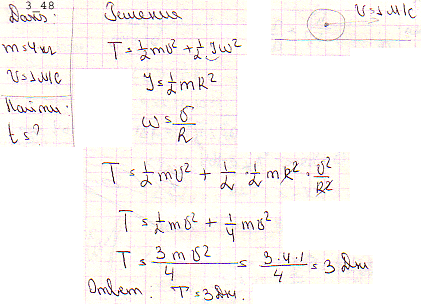 3.48
Дано:
m=4 кг
υ=1 м/с
Найти:
t=?
Решение
υ=1 м/с
T=½mυ²+½Jω²
J=½mR²
ω=υ/R
T=½mυ²+½·½mR²·υ²/R²
T=½mυ²+¼mυ²
T=3mυ²/4=3·4·1/4=3 Дж
Ответ: T=3 Дж.